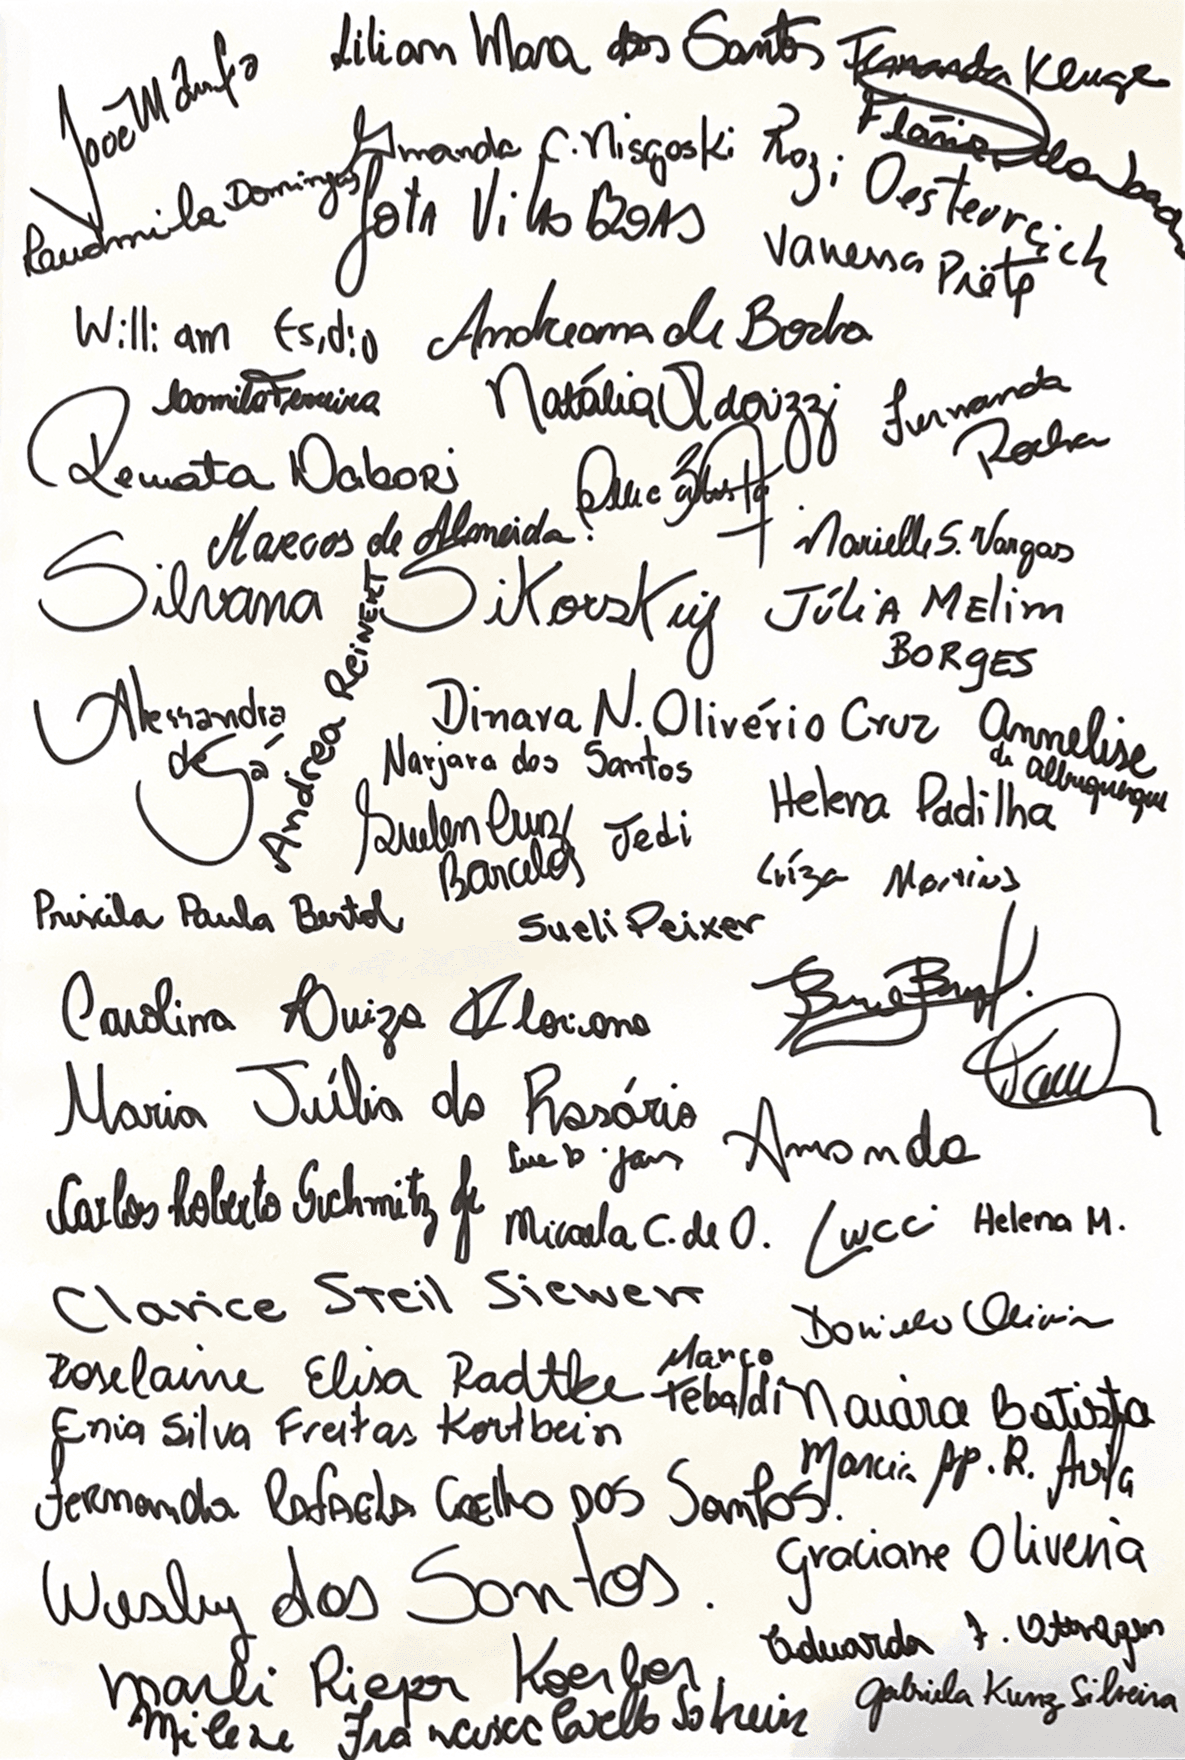 Liliam Mara dos Santos
Fernanda Kluge
José M
Amanda C. Nisgoski
Rozi Oesterreich
Flávia
Ludmila Domingos
Jota Villas Boas
Vanessa Préte
William Esidio
Andreana de Borba
Camila Ferreira
Natália
Fernanda
Rocha
Renata Dabori
Marcos de Almeida
Marielle S. Vargas
Silvana Sikorskiy
JÚLIA MELIM
BORGES
Andrea Reinert
Alessandra
de Sá
Dinara N. Olivério Cruz
Annelise
de Albuquerque
Narjara dos Santos
Helena Padilha
Suelen Cruz
Barcelos
Jedi
Luíza Martins
Priscila Paula Bertol
Sueli Peixer
Carolina Luiza Floriano
Maria Júlia do Rosário
Amanda
Carlos Roberto Schmitz Jr
Micaela C. de O.
Lucci
Helena M.
Clarice Steil Siewert
Daniela Olivia
Roselaine Elisa Radtke
Marco
Tebaldi
Naiára Batista
Enia Silva Freitas Kortbein
Marcia Ap. R. Avila
Fernanda Rafaela Coelho dos Santos.
Graciane Oliveira
Wesley dos Santos.
Eduarda
Marli Rieper Koerber
Gabriela Kunz Silveira
Milene Francisca Coelho